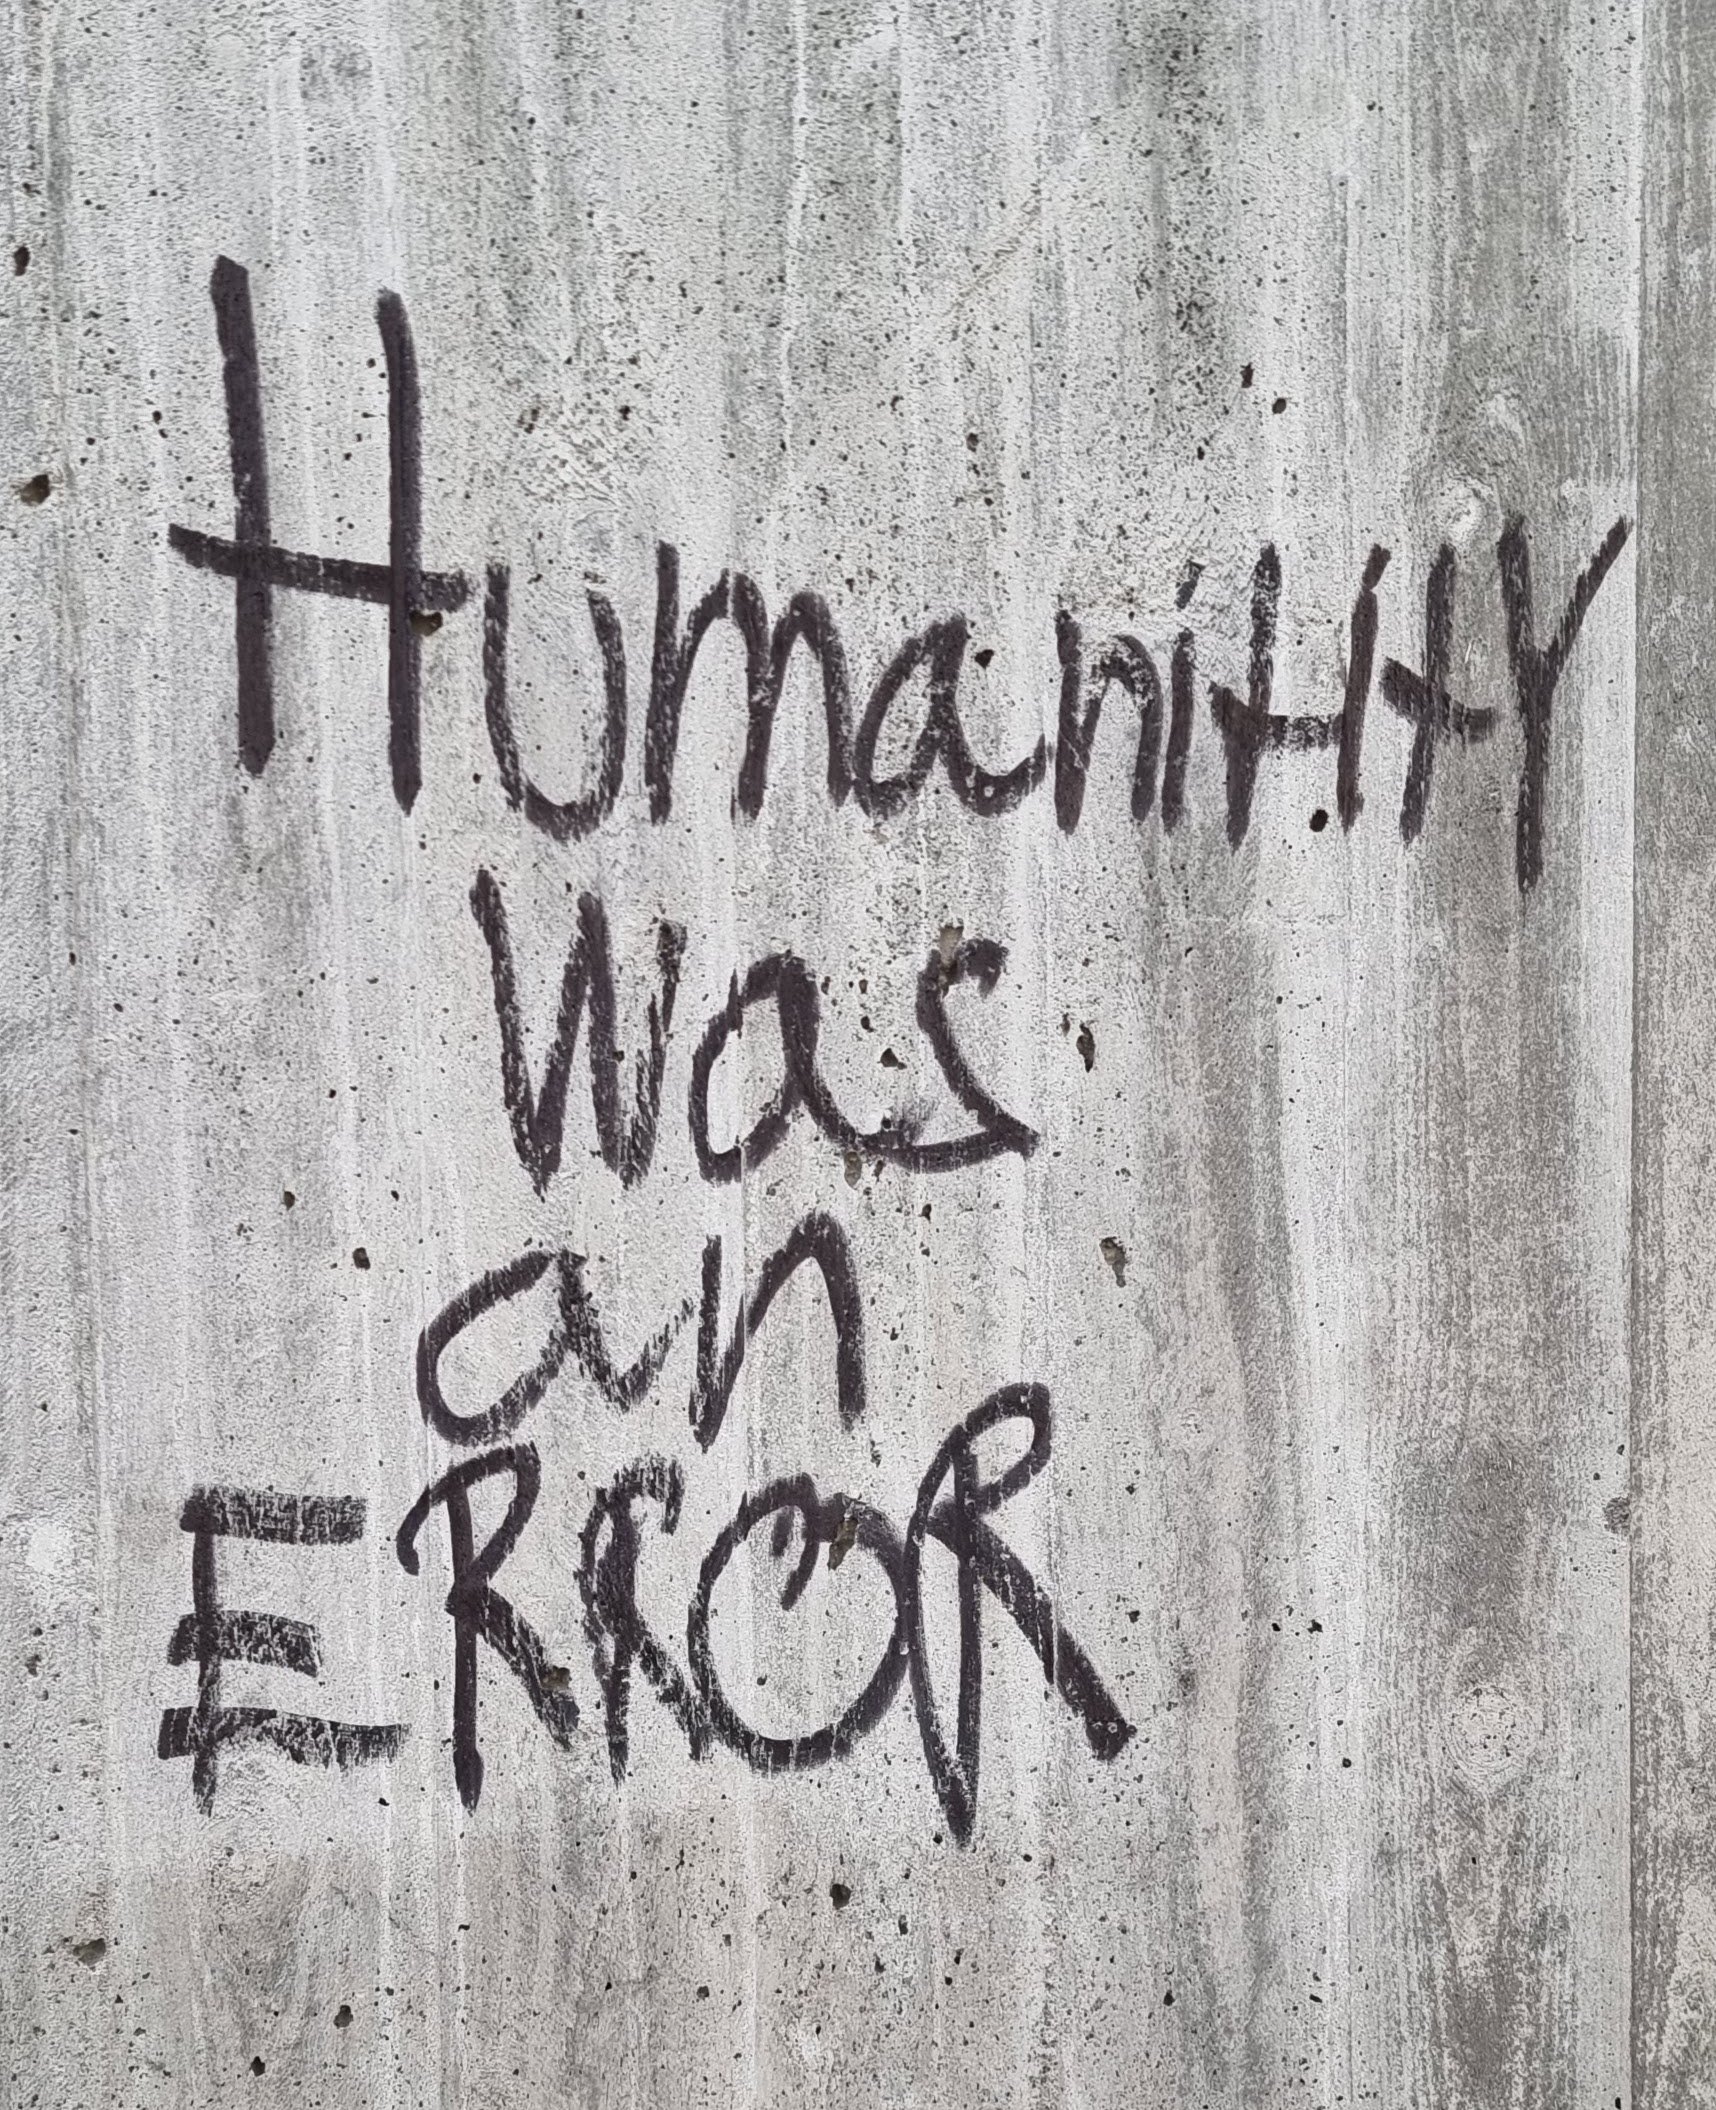 HumanititY
Was
an
ERROR